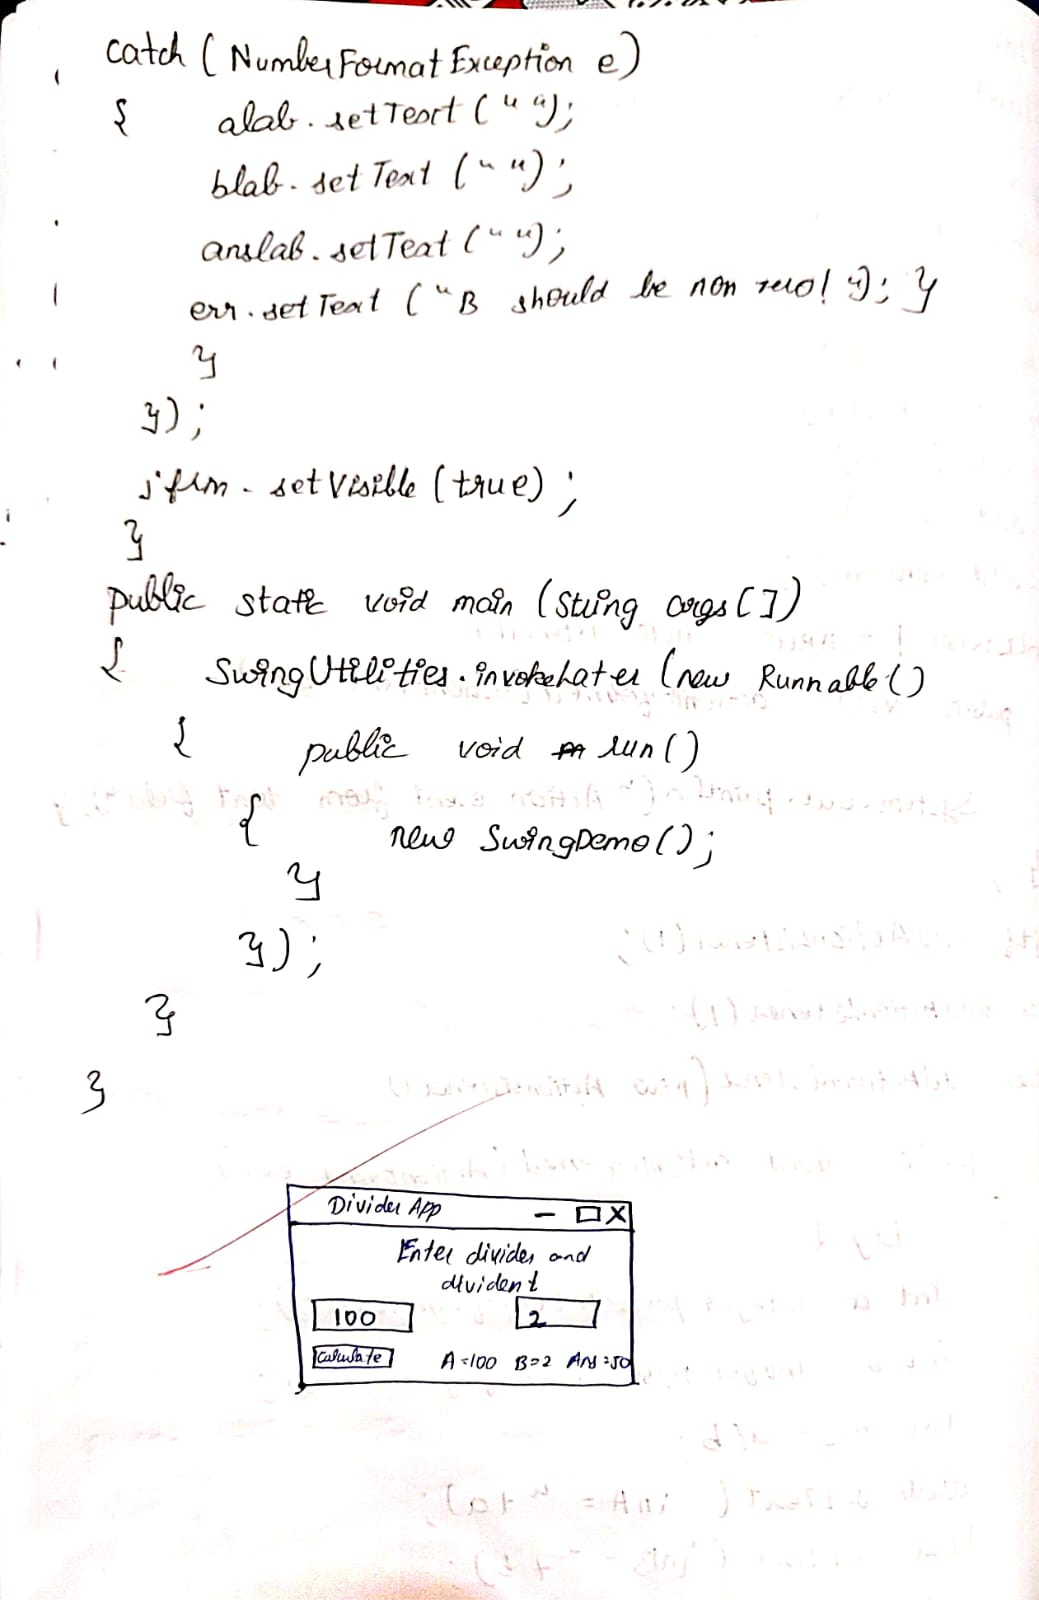 catch ( NumberFormat Exception e)
{ alab. setText (" ");
blab. set Text (" ");
anslab. setText (" ");
err. set Text ( "B should be non zero! "); }
}
});
jfrm. setVisible (true) ;
}
public static void main (String args [])
{ SwingUtilities. invokeLater (new Runnable ()
{ public void run ()
{ new SwingDemo ();
}
});
}
}
Divider App — □ X
Enter divider and
divident
100 2
Calculate A=100 B=2 Ans=50